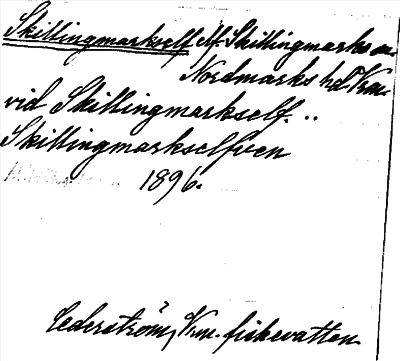 Skillingmarkself Nf. Skillingmarks sn
Nordmarks hd Vrm.
vid Skillingmarkself. ..
Skillingmarkselfven
1896.
Cederström, Vrm. fiskevatten